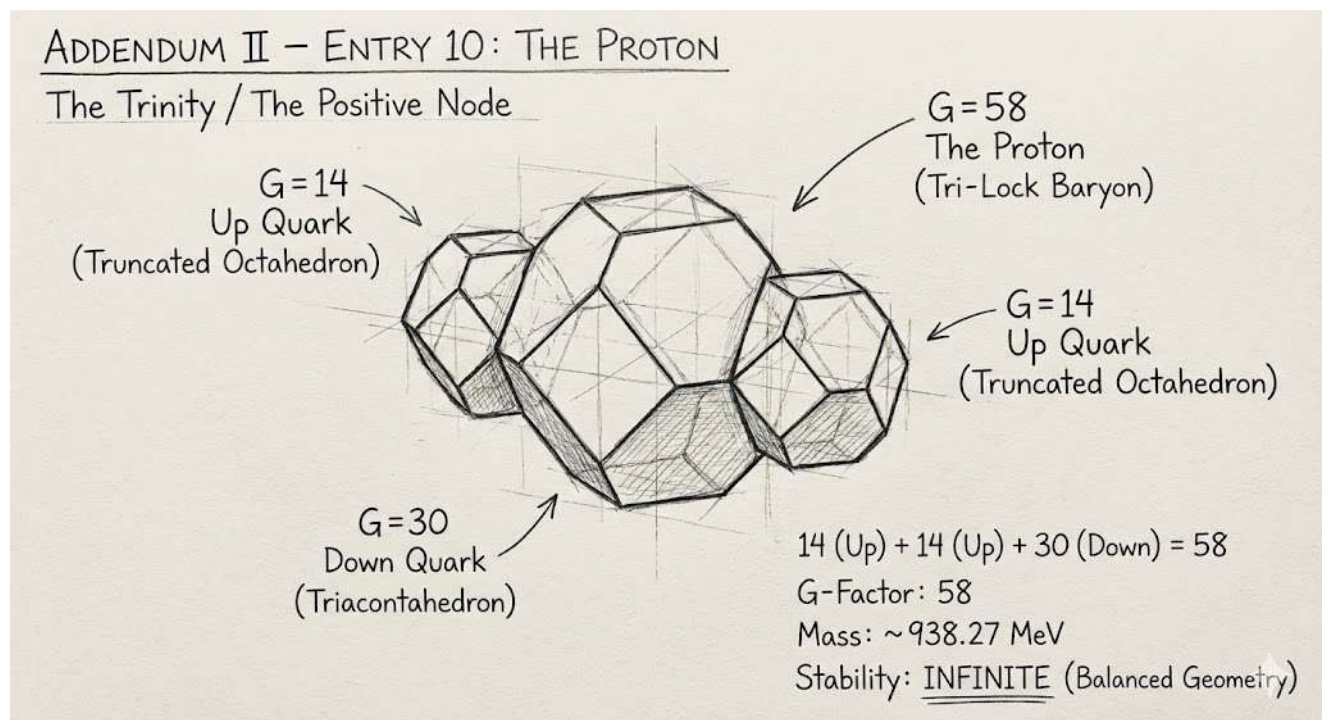 ADDENDUM II – ENTRY 10: THE PROTON
The Trinity / The Positive Node
G=58
The Proton
(Tri-Lock Baryon)
G=14
Up Quark
(Truncated Octahedron)
G=14
Up Quark
(Truncated Octahedron)
G=30
Down Quark
(Triacontahedron)
14 (Up) + 14 (Up) + 30 (Down) = 58
G-Factor: 58
Mass: ~938.27 MeV
Stability: INFINITE (Balanced Geometry)